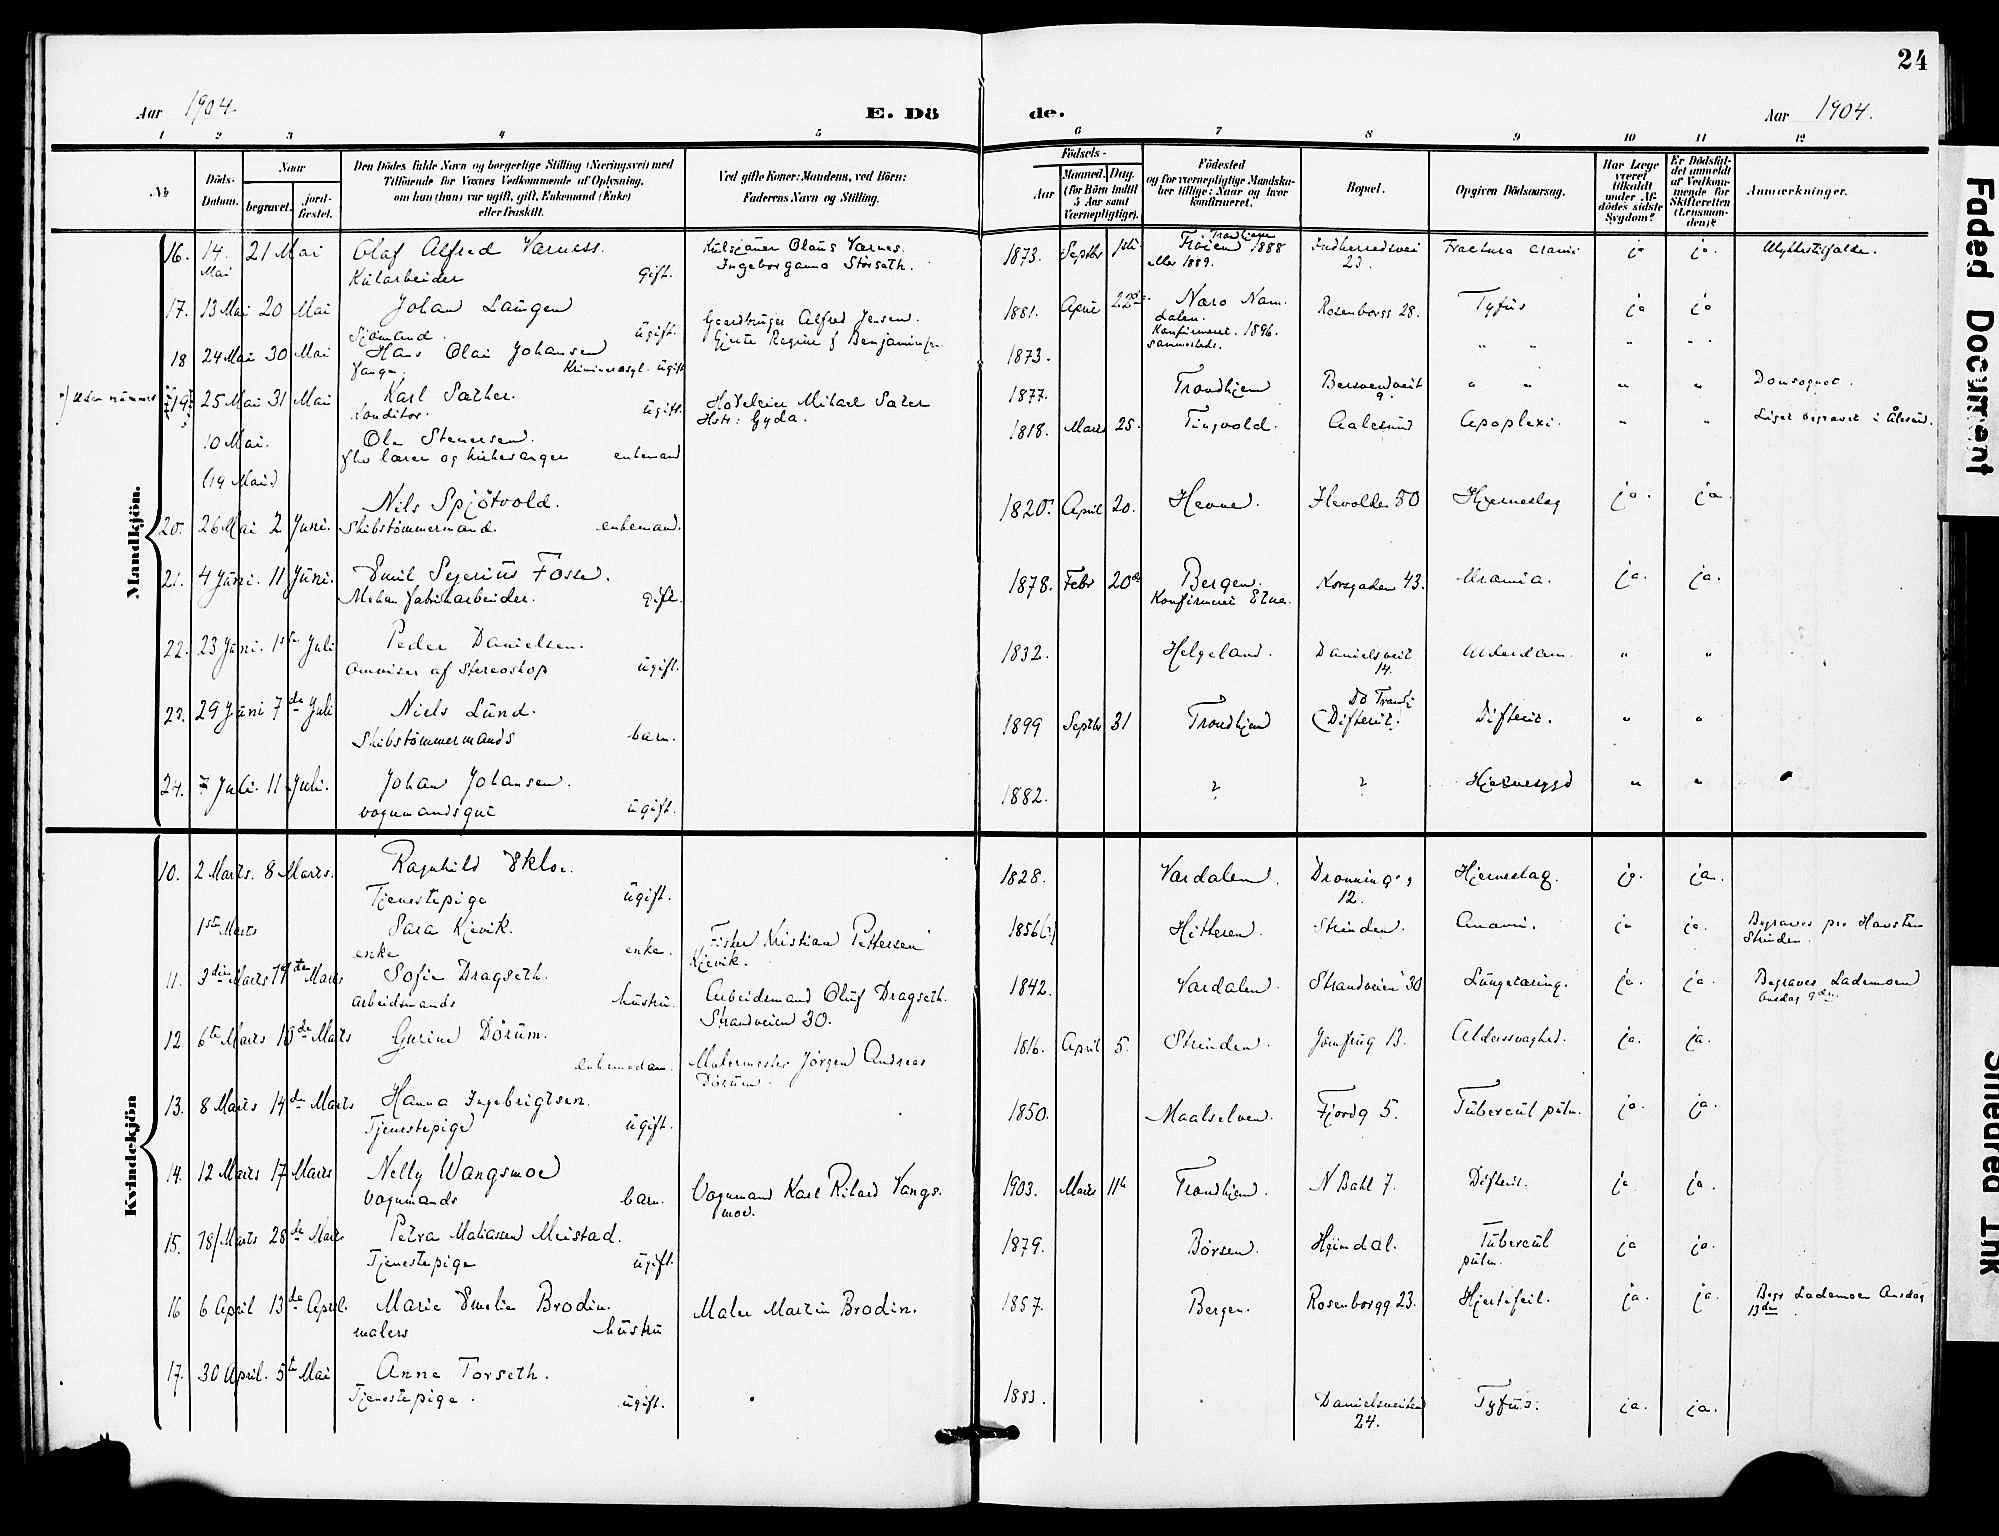 24
Aar 1904.
E. Dö
de.
Aar 1904.
1 2 3 4 5 6 7 8 9 10 11 12
No
Döds-Datum.
Naar
begravet.
jord-fæstet.
Den Dödes fulde Navn og borgerlige Stilling (Næringsvei) med
Tilföiende for Voxnes Vedkommende af Oplysning,
om han (hun) var ugift, gift, Enkemand (Enke)
eller fraskilt.
Ved gifte Koner: Mandens, ved Börn:
Faderens Navn og Stilling.
Födsels-
Aar
Maaned. Dag.
(for Börn indtil
5 Aar samt
Værnepligtige).
Födested
og for værnepligtige Mandska-
ber tillige: Naar og hvor
konfirmeret.
Bopæl.
Opgiven Dödsaarsag.
Har Læge
været
tilkaldt
under Af-
dödes sidste
Sygdom?
Er Dödsfal-
det anmeldt
af Vedkom-
mende for
Skifteretten
(Lensman-
den)?
Anmærkninger.
Mandkjön.
16. 14. Mai 21 Mai Olaf Alfred Varness. Olaus Varnes. 1873. Septbr Trondhjem 1888 Indherredsvei Fractura cranii ja ja. Ulykkestilfælde.
gift. Ingeborganna Störseth. eller 1889. 23.
17. 13 Mai 20 Mai Johan Laugen Gaardbruger Alfred Jensen. 1881. April 22de Nærö Nam- Rosenborgg 28. Tyfus ja ja
Sjömand. ugift. dalen.
Konfirmeret. 1896.
sammesteds.
18 24 Mai 30 Mai Hans Olai Johansen 1873. " " " "
Fange. Kriminalasyl. ugift
Uden nummer
19 25 Mai 31 Mai Karl Sæther. Hoteleier Mikael Sæter 1877. Trondhjem " " " " Domsognet.
Konditor. ugift. Hstr: Gyda.
10 Mai. Ola Stenersen. 1818. Marts 25. Tingvold. Aalesund Apoplexi. " " Liget begravet i Ålesund.
fhv lærer og kirkesanger enkemand
(19 Mai)
20. 26 Mai 2 Juni. Nils Spjötvold. 1820. April 20. Hevne. Ilevolden 50 Hjerneslag ja. ja
Skibstömmermand. enkemand.
21. 4 Juni. 11 Juni. Emil Sejerius Fosse. 1878. Febr 20de Bergen. Korsgaden 43. Uræmia. ja. ja.
Mekan fabrikarbeider. gift. Konfirmeret Etne.
22. 23 Juni. 1ste Juli Peder Danielsen. 1832. Helgeland. Danielsveit 14. Alderdom. " "
omviser af Stereoskop ugift.
23. 29 Juni 7de Juli Niels Lund. 1899 Septbr 31 Trondhjem (Difterit. Difterit. " "
Skibstömmermands barn.
24. 7 Juli. 11 Juli. Johan Johansen. 1882. ? ? Hjernesygd " "
vognmandsgut ugift.
Kvindekjön
10. 2 Marts. 8 Marts. Ragnhild Eklo. 1828. Værdalen. Dronningsg 12. Hjerneslag. ja. ja.
Tjenestepige ugift.
1ste Marts Sara Kjevik. Fisker Kristian Pettersen 1856(?) Hitteren. Strinden. Anæmi. ja ja. Begraves
enke enke. Kjevik. Strinden.
11. 3die Marts Marts Sofie Dragseth. Arbeidsmand Oluf Dragseth. 1842. Værdalen. Strandveien 30 Lungetæring. ja. ja. Begraves Lademoen
arbeidsmands hustru. Strandveien 30. Onsdag 9de.
12. 6te Marts Marts Gurine Dörum. Malermester Jörgen Andreas 1816. April 5. Strinden. Jomfrug 13. Alderssvaghed. ja. ja.
enkemadam. Dörum.
13. 8 Marts 14de Marts Hanna Ingebrigtsen. 1850. Maalselven. Fjordg 5. Tubercul pulm. ja. ja.
Tjenestepige ugift.
14. 12 Marts 17 Marts Nelly Wangsmoe Vognmand Karl Rikard Vangs- 1903. Marts 11te Trondhjem. N Bakl 7. Difterit. ja ja.
Vognmands barn. moe.
15. 18/Marts 28de Marts Petra Meistad. 1879. Börsen. Heimdal. Tubercul ja ja.
Tjenestepige ugift. pulm.
16 6 April 13de April. Marie Emelie Brodin. Maler Martin Brodin. 1857. Bergen. Rosenborgg 23. Hjertefeil. ja. ja. Begr Lademoen Onsdag
malers hustru 13de.
17. 30 April. 5te Mai Anne Torseth. 1883. Danielsveiten Tyfus. ja. ja.
Tjenestepige. ugift. 24.
Faded Document
Smeared Ink